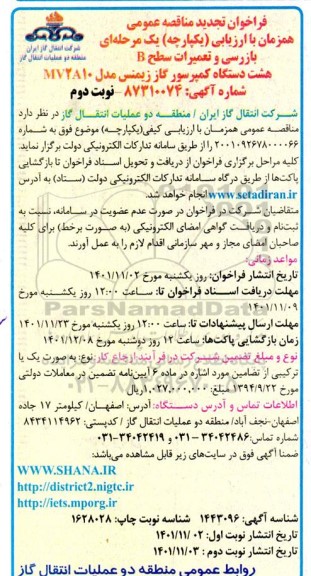 فراخوان تجدید مناقصه عمومی
همزمان با ارزیابی (یکپارچه) یک مرحله‌ای
بازرسی و تعمیرات سطح B
هشت دستگاه کمپرسور گاز زیمنس مدل MV2A10
شماره آگهی: 8731074- نوبت دوم
شرکت انتقال گاز ایران
منطقه دو عملیات انتقال گاز
شرکت انتقال گاز ایران / منطقه دو عملیات انتقال گاز در نظر دارد
مناقصه عمومی همزمان با ارزیابی کیفی(یکپارچه) موضوع فوق به شماره
2001092678000066 را از طریق سامانه تدارکات الکترونیکی دولت برگزار نماید.
کلیه مراحل برگزاری فراخوان از دریافت و تحویل اسناد فراخوان تا بازگشایی
پاکت‌ها از طریق درگاه سامانه تدارکات الکترونیکی دولت (ستاد) به آدرس
www.setadiran.ir انجام خواهد شد.
متقاضیان شرکت در فراخوان در صورت عدم عضویت در سامانه، نسبت به
ثبت‌نام و دریافت گواهی امضای الکترونیکی (به صورت برخط) برای کلیه
صاحبان امضای مجاز و مهر سازمانی اقدام لازم را به عمل آورند.
مواعد زمانی:
تاریخ انتشار فراخوان: روز یکشنبه مورخ 1401/11/02
مهلت دریافت اسناد فراخوان تا: ساعت 12:00 روز یکشنبه مورخ
1401/11/09
مهلت ارسال پیشنهادات تا: ساعت 12:00 روز یکشنبه مورخ 1401/11/23
زمان بازگشایی پاکت‌ها: ساعت 12 روز دوشنبه مورخ 1401/12/08
نوع و مبلغ تضمین شرکت در فرآیند ارجاع کار: نوع: به صورت یک یا
ترکیبی از تضامین مورد اشاره در ماده 6 آیین‌نامه تضمین در معاملات دولتی
مورخ 1394/9/22. مبلغ: 1,027,000,000 ریال
اطلاعات تماس و آدرس دستگاه: آدرس: اصفهان/ کیلومتر 17 جاده
اصفهان-نجف آباد/ منطقه دو عملیات انتقال گاز / کدپستی: 8434114962
شماره تماس: 34042486-031 و 34042419-031
ضمنا آگهی فوق در سایت‌های زیر قابل مشاهده می‌باشد:
WWW.SHANA.IR
http://district2.nigtc.ir
http://iets.mporg.ir
شناسه آگهی: 1443096 شناسه نوبت چاپ: 1628028
تاریخ انتشار نوبت اول: 02 /1401/11
تاریخ انتشار نوبت دوم : 1401/11/03
روابط عمومی منطقه دو عملیات انتقال گاز